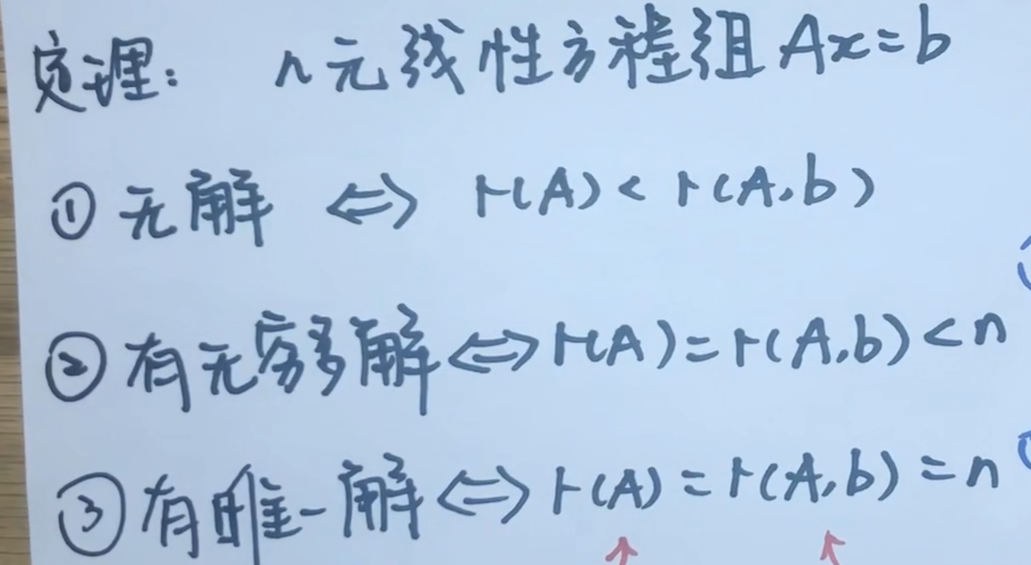 定理： n元线性方程组Ax=b
① 无解 ⇔ r(A)<r(A,b)
② 有无穷多解⇔r(A)=r(A,b)<n
③ 有唯一解⇔r(A)=r(A,b)=n